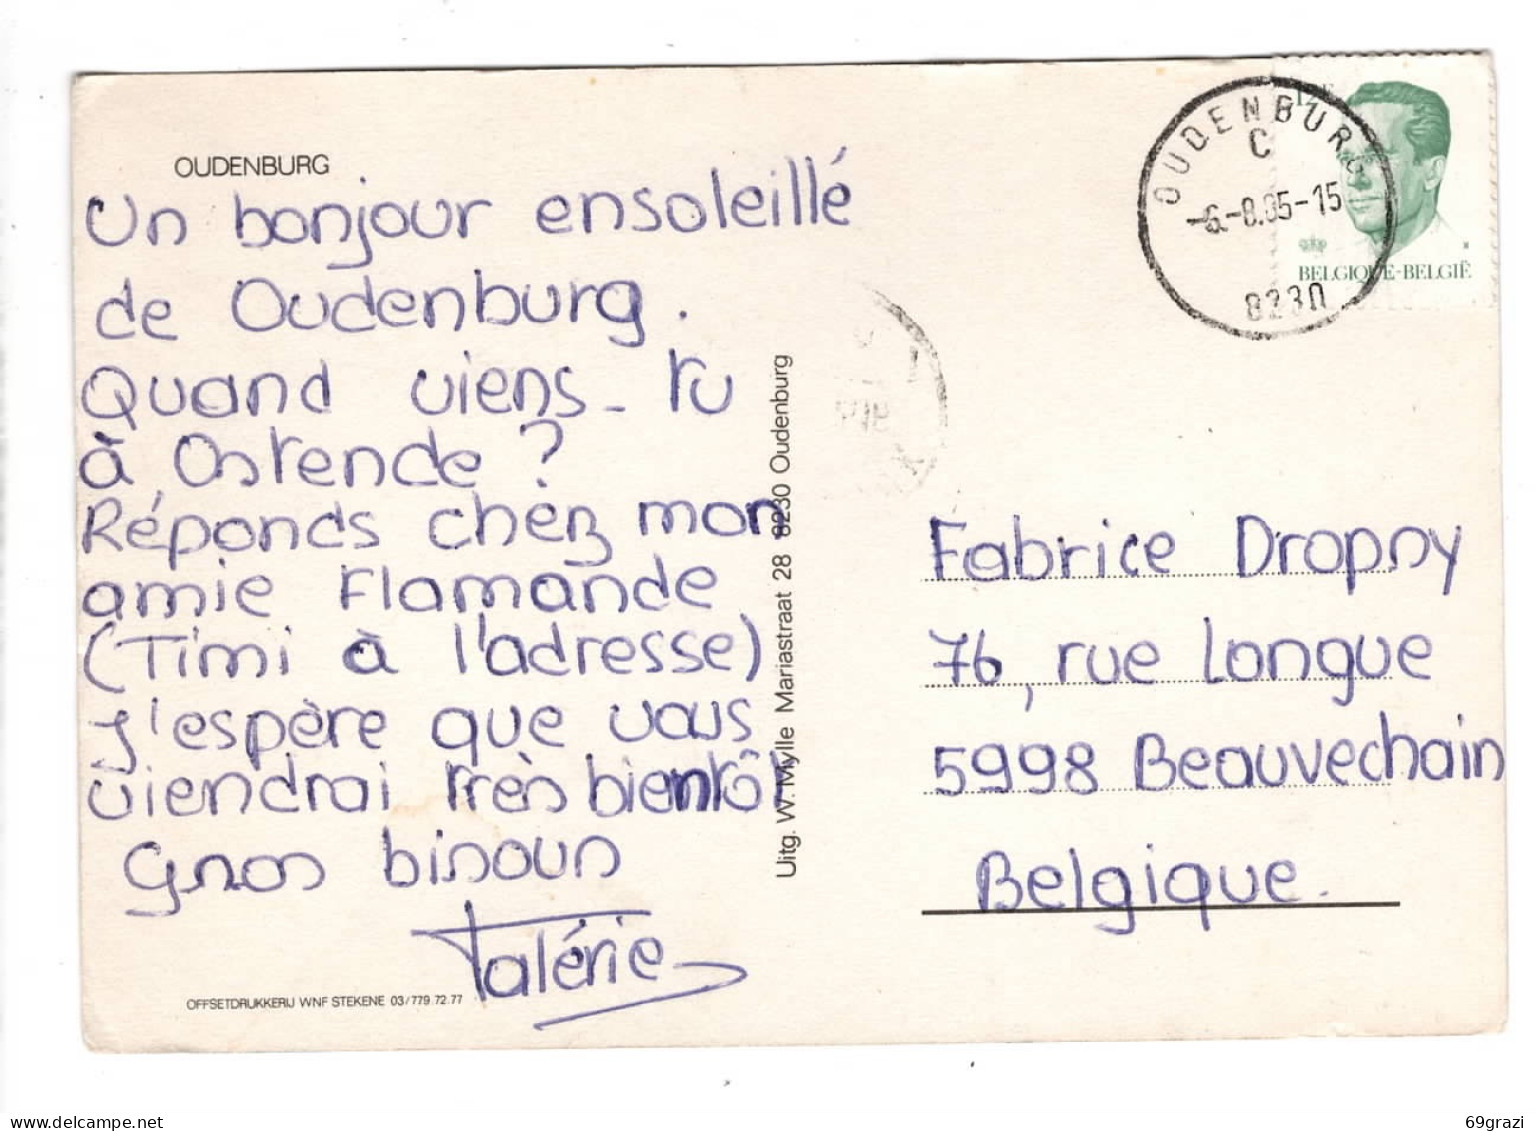 OUDENBURG
Un bonjour ensoleillé
de Oudenburg.
Quand viens-tu
à Ostende ?
Réponds chez mon
amie Flamande
(Timi à l'adresse)
J'espère que vous
viendrai très bientôt
Gros bisous
Valérie
OFFSETDRUKKERIJ WNF STEKENE 03/779.72.77
Uitg. W. Mylle Mariastraat 28 8230 Oudenburg
OUDENBURG
C
-6.-8.85-15
8230
12F
BELGIQUE-BELGIË
Fabrice Dropsy
76, rue Longue
5998 Beauvechain
Belgique.
69grazi